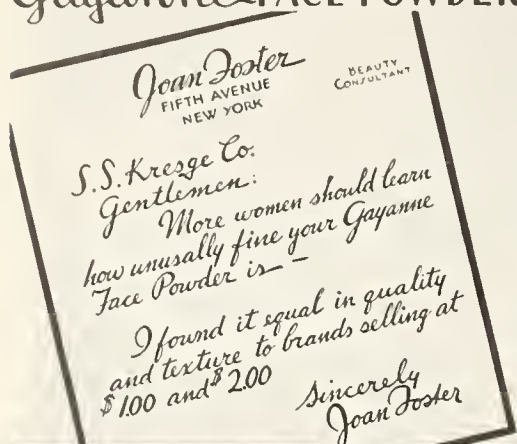 Gayanne FACE POWDER
Joan Foster
FIFTH AVENUE
NEW YORK
BEAUTY
CONSULTANT
S.S. Kresge Co.
Gentlemen:
More women should learn
how unusally fine your Gayanne
Face Powder is —
I found it equal in quality
and texture to brands selling at
$1.00 and $2.00
Sincerely
Joan Foster